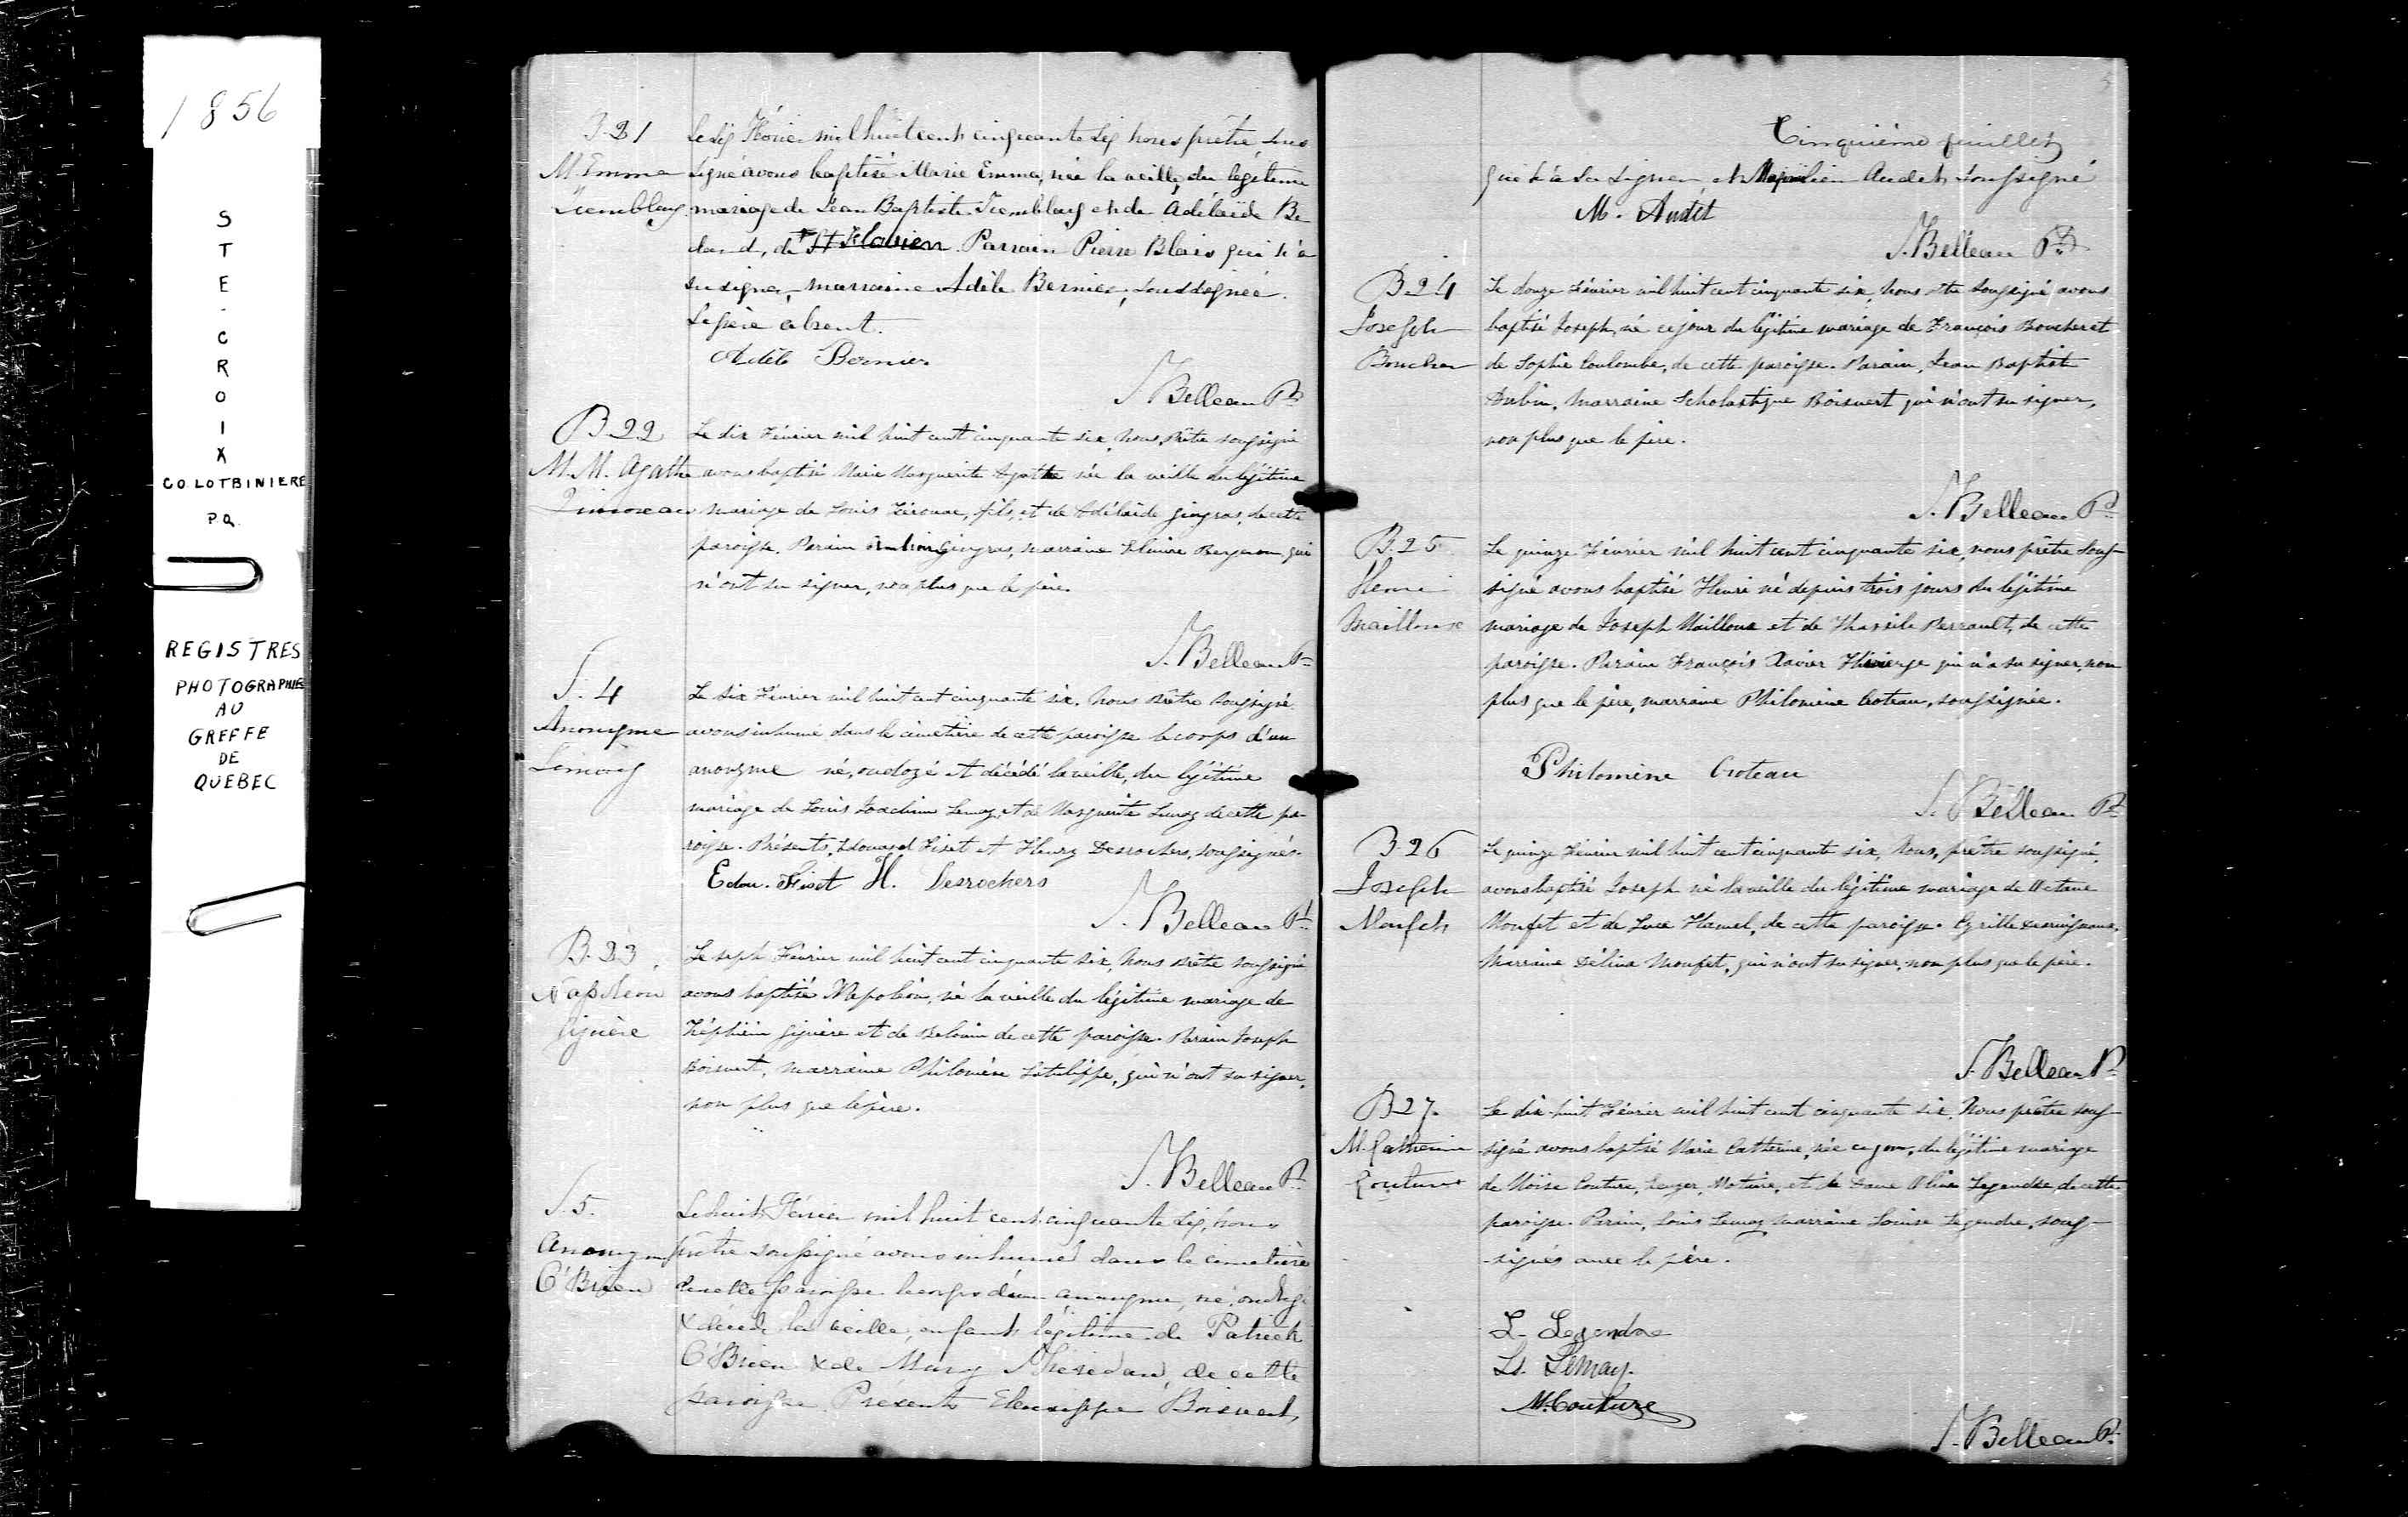 1856
STE-CROIX
CO. LOTBINIERE
P.Q.
REGISTRES
PHOTOGRAPHIÉS
AU
GREFFE
DE
QUEBEC
B. 21
M. Emma
Tremblay
Le six Février mil huit cent cinquante six nous prêtre sous
signé avons baptisé Marie Emma, née la veille, du légitime
mariage de Jean Baptiste Tremblay et de Adélaïde Be
land, de St Flavien. Parrain Pierre Blais qui n'a
su signer, marraine Adèle Bernier, soussignée.
Le père absent.
Adèle Bernier
S. Belleau Ptre
B 22
M. M. Agathe
Le dix Février mil huit cent cinquante six, nous, Prêtre soussigné
avons baptisé Marie Marguerite Agathe née la veille du légitime
mariage de Louis, fils, et de Adélaïde Gingras, de cette
paroisse. Parain Gingras, marraine Bergeron, qui
n'ont su signer, non plus que le père.
S. Belleau Ptre
S. 4
Anonyme
Lemay
Le six Février mil huit cent cinquante six. Nous Prêtre soussigné
avons inhumé dans le cimetière de cette paroisse le corps d'un
anonyme né, ondoyé et décédé la veille, du légitime
mariage de Louis Joachim Lemay, et de Marguerite Lemay de cette pa-
roisse. Présents, Edouard Fiset et Henry Desrochers, soussignés.
Edou. Fiset H. Desrochers
S. Belleau Ptre
B. 23
Napoléon
Giguère
Le sept Février mil huit cent cinquante six, Nous Prêtre soussigné
avons baptisé Napoléon, né la veille du légitime mariage de
Zéphirin Giguère et de de cette paroisse. Parain Joseph
Boisvert, marraine Philomène, qui n'ont su signer,
non plus que le père.
S. Belleau Ptre
S. 5.
Anonyme
O'Brien
Le huit Février mil huit cent cinquante six, nous
prêtre soussigné avons inhumé dans le cimetière
de cette paroisse le corps d'un anonyme, né, ondoyé
& décédé la veille, enfant légitime de Patrick
O'Brien & de Mary Sheredan, de cette
paroisse. Présents Eleusippe Boisvert,
5
Cinquième feuillet
qui n'a su signer, et Audet soussigné
M. Audet
S. Belleau Ptre
B 24
Joseph
Boucher
Le douze Février mil huit cent cinquante six, Nous Ptre soussigné avons
baptisé Joseph, né ce jour du légitime mariage de François Boucher et
de Sophie Coulombe, de cette paroisse. Parain, Jean Baptiste
Aubin, Marraine Scholastique Boisvert qui n'ont su signer,
non plus que le père.
S. Belleau Ptre
B. 25
Henri
Mailloux
Le quinze Février mil huit cent cinquante six, nous prêtre sous-
signé avons baptisé Henri né depuis trois jours du légitime
mariage de Joseph Mailloux et de Tharsile Perrault, de cette
paroisse. Parain François Xavier Thivierge qui n'a su signer, non
plus que le père, marraine Philomène Croteau, soussignée.
Philomène Croteau
S. Belleau Ptre
B 26
Joseph
Monfet
Le quinze Février mil huit cent cinquante six, Nous, prêtre soussigné,
avons baptisé Joseph né la veille du légitime mariage de Octave
Monfet et de Luce Hamel, de cette paroisse. Cyrille
Marraine Délina Monfet, qui n'ont su signer, non plus que le père.
S. Belleau Ptre
B 27.
M. Catherine
Couture
Le dix-huit Février mil huit cent cinquante six. Nous prêtre sous-
signé avons baptisé Marie Catherine, née ce jour, du légitime mariage
de Moïse Couture, Notaire, et de Dame Legendre, de cette
paroisse. Parain, Louis Lemay Marraine Louise Legendre, sous-
-signés avec le père.
L. Legendre
Ls. LeMay.
M. Couture
S. Belleau Ptre